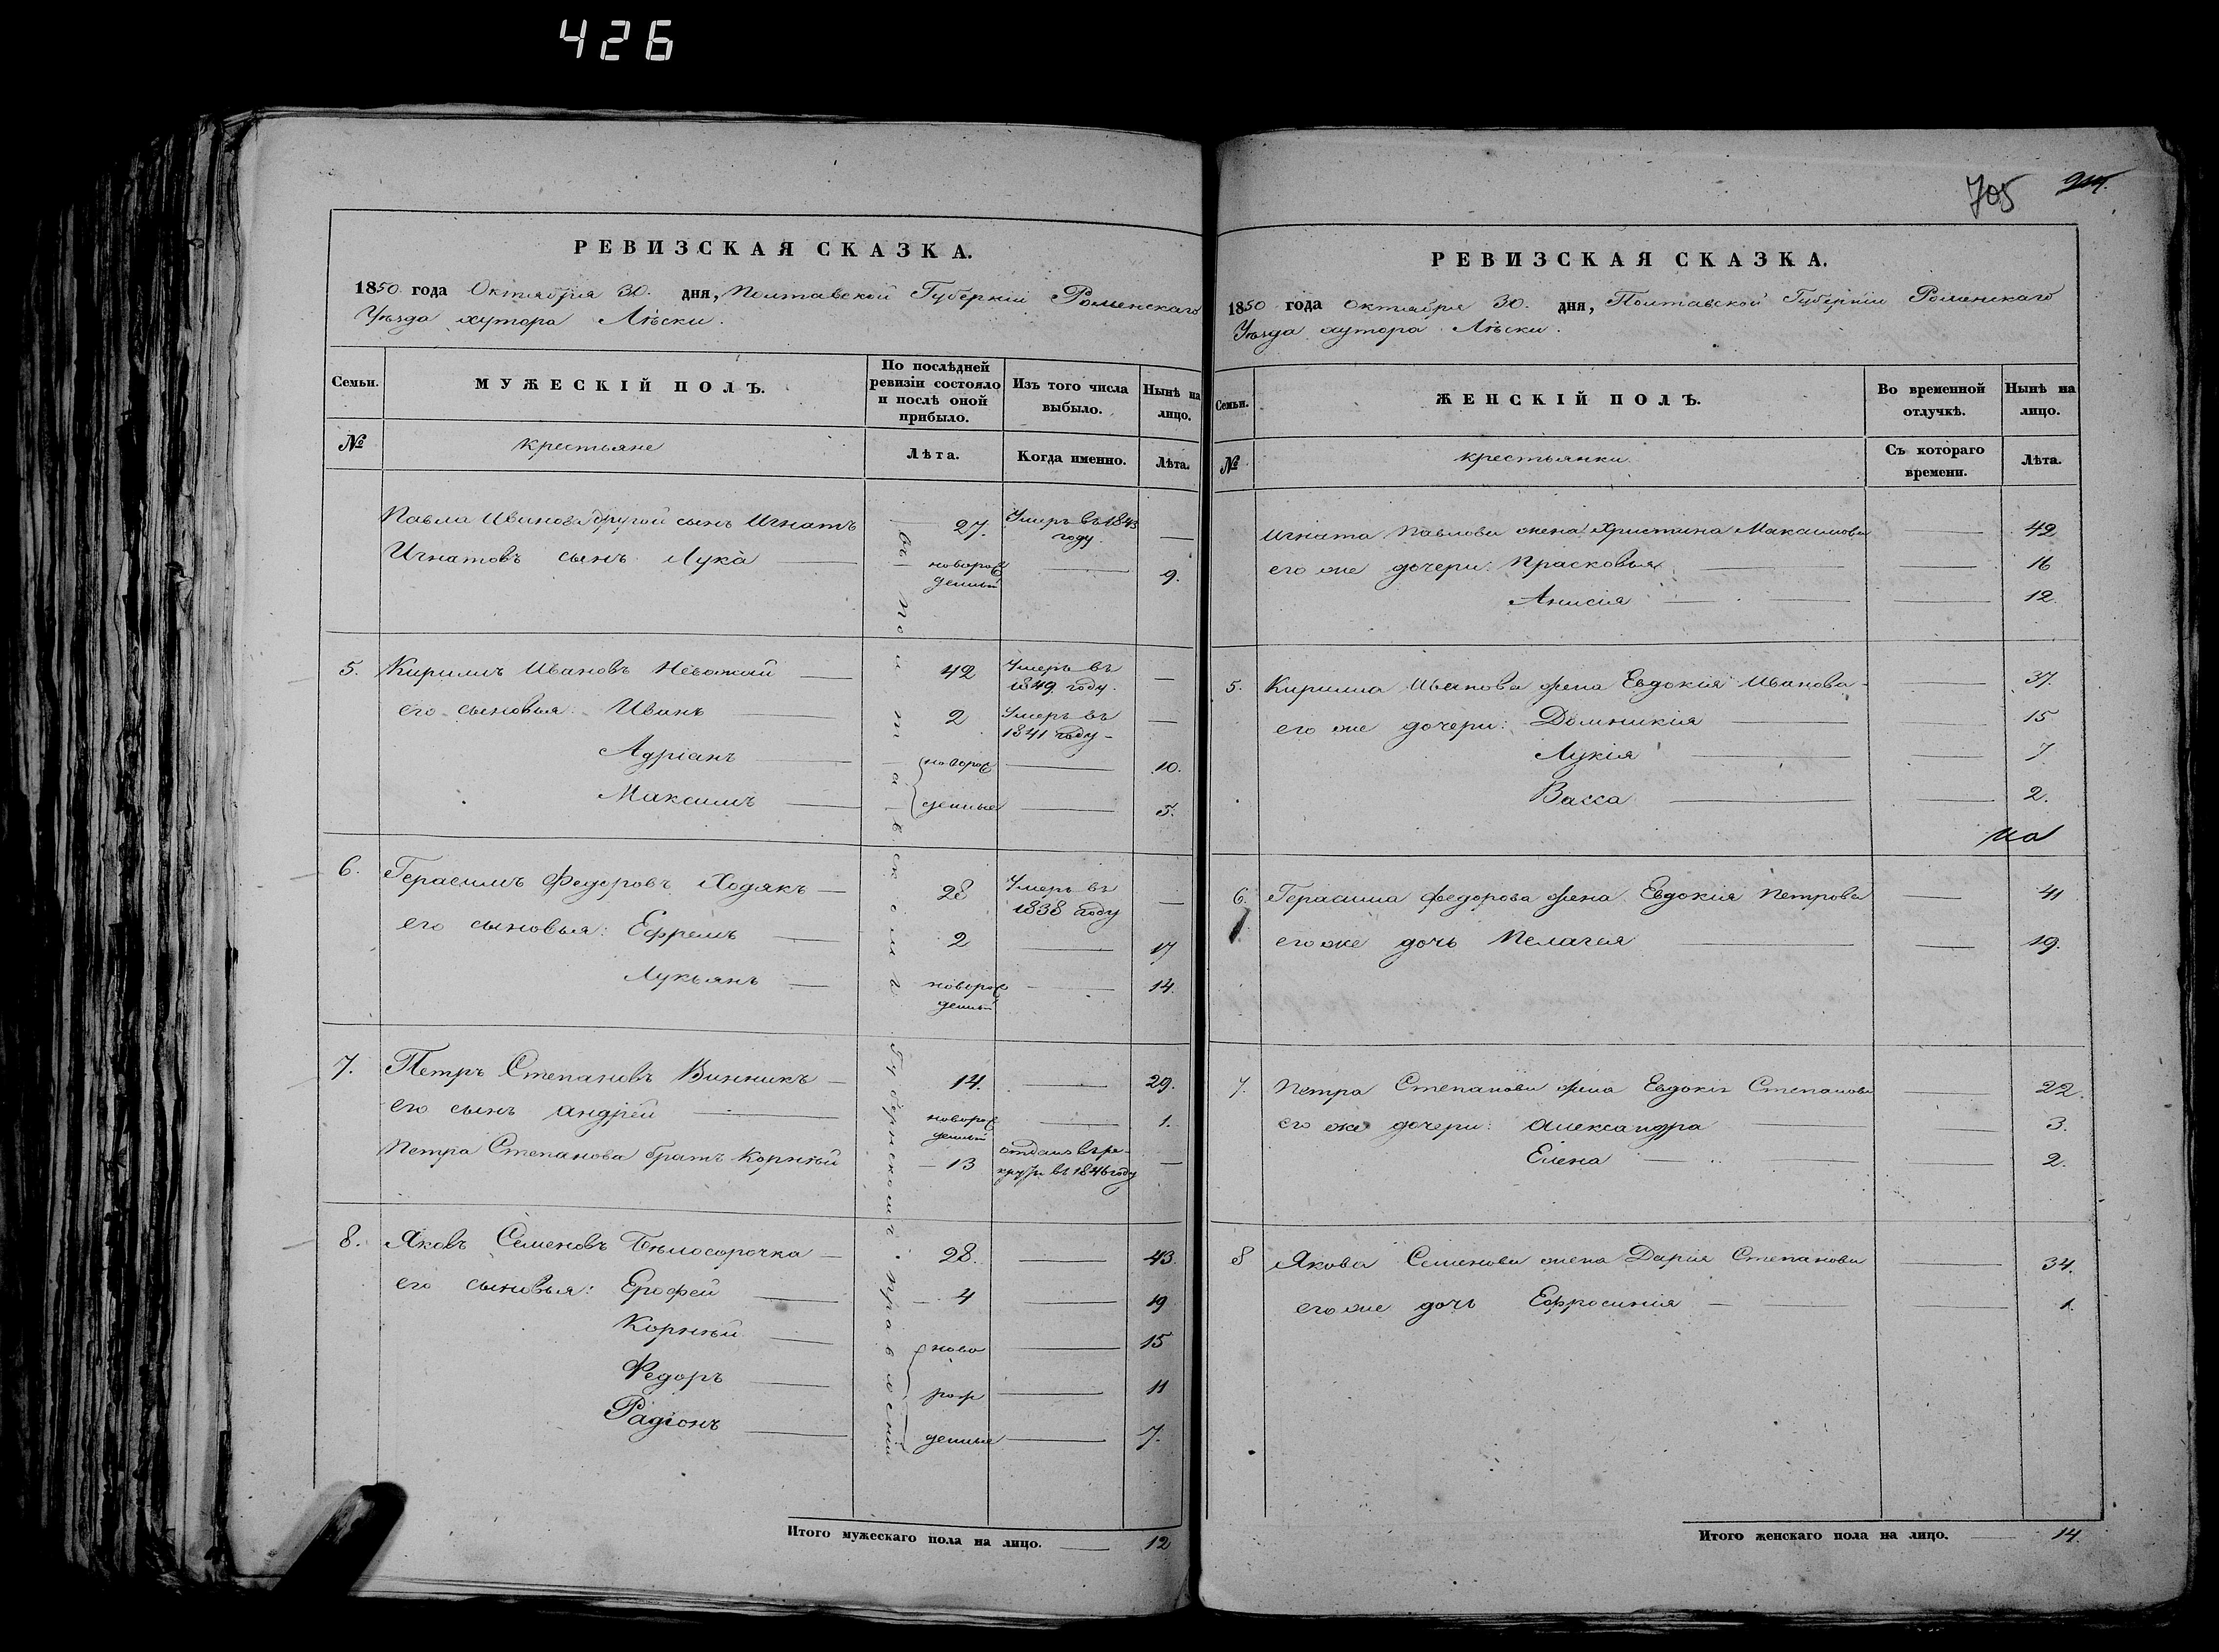 426
РЕВИЗСКАЯ СКАЗКА.
1850 года Октября 30. дня, Полтавской Губерніи Роменскаго
Уѣзда хутора Лѣски.
Семьи.
МУЖЕСКІЙ ПОЛЪ.
По послѣдней
ревизіи состояло
и послѣ оной
прибыло.
Изъ того числа
выбыло.
Нынѣ на
лицо.
№
крестьяне
Лѣта.
Когда именно.
Лѣта.
Павла Иванова другой сынъ Игнатъ — 27. Умеръ въ 1843 году. —
Игнатовъ сынъ Лука — новорожденный — 9.
5. Кирилъ Ивановъ Неважай — 42 Умеръ въ 1849 году. —
его сыновья: Иванъ — 2 Умеръ въ 1841 году —
Адріанъ — новорож — 10.
Максимъ — денные — 5.
6. Герасимъ Федоровъ Ходякъ — 28 Умеръ въ 1838 году —
его сыновья: Ефремъ — 2 — 17
Лукьянъ — новорожденный — 14.
7. Петръ Степановъ Винникъ — 14. — 29.
его сынъ Андрей — новорожденный — 1.
Петра Степанова братъ Корнѣй — 13 отданъ въ рекруты въ 1846 году —
8. Яковъ Семеновъ Бѣлосорочка — 28. — 43.
его сыновья: Ерофей — 4 — 19
Корнѣй — ново — 15
Федоръ — рож — 11
Радіонъ — денные — 7.
въ Полтавскомъ Губернскомъ правленіи
Итого мужескаго пола на лицо. — 12
705
РЕВИЗСКАЯ СКАЗКА.
1850 года Октября 30. дня, Полтавской Губерніи Роменскаго
Уѣзда хутора Лѣски.
Семьи.
ЖЕНСКІЙ ПОЛЪ.
Во временной
отлучкѣ.
Нынѣ на
лицо.
№
крестьянки
Съ котораго
времени.
Лѣта.
Игната Павлова жена Христина Максимова — 42
его же дочери: Прасковья — 16
Анисія — 12.
5. Кирила Иванова жена Евдокія Иванова — 37.
его же дочери: Домникія — 15
Лукія — 7
Васса — 2.
6. Герасима Федорова жена Евдокія Петрова — 41
его же дочь Пелагея — 19.
7. Петра Степанова жена Евдокія Степанова — 22.
его же дочери: Александра — 3.
Елена — 2.
8 Якова Семенова жена Дарія Степанова — 34.
его же дочь Ефросинія — 1.
Итого женскаго пола на лицо. — 14.